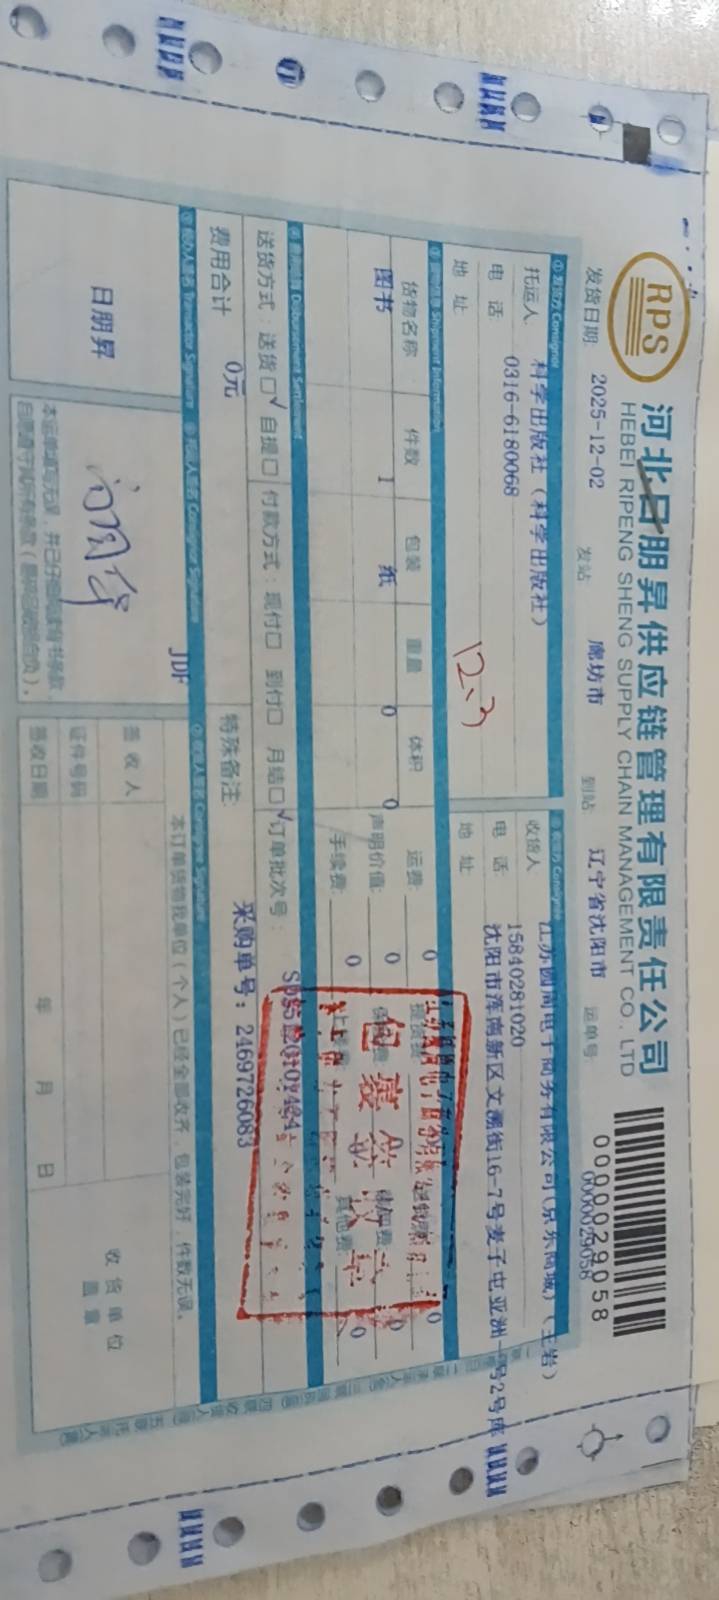 RPS
河北日朋昇供应链管理有限责任公司
HEBEI RIPENG SHENG SUPPLY CHAIN MANAGEMENT CO., LTD
0000029058
0000029058
发货日期: 2025-12-02 发站 廊坊市 到站 辽宁省沈阳市 运单号:
①发货方 Consignor
托运人 科学出版社(科学出版社)
电 话: 0316-6180068
地 址
收货人 江苏圆周电子商务有限公司(京东商城)(王岩)
电 话: 15840281020
地 址 沈阳市浑南新区文溯街16-7号麦子屯亚洲一号2号库
12.3
③货物信息 Shipment Information
货物名称 件数 包装 重量 体积
图书 1 纸 0 0
运费: 0
声明价值: 0
手续费: 0
其他费: 0
④费用结算 Disbursement Settlement
送货方式: 送货☑ 自提□ 付款方式: 现付□ 到付□ 月结☑ 订单批次号:
费用合计 0元 特殊备注: 采购单号: 2469726083
⑤经办人签名 Transactor Signature
⑥托运人签名 Consignor Signature
JDF
⑦收货人签名 Consignee Signature
日朋昇
本运单填写无误,并已仔细阅读背书条款,
本订单货物我单位(个人)已经全部收齐,包装完好,件数无误。
签收人
证件号码
签收日期 年 月 日
收货单位
盖章